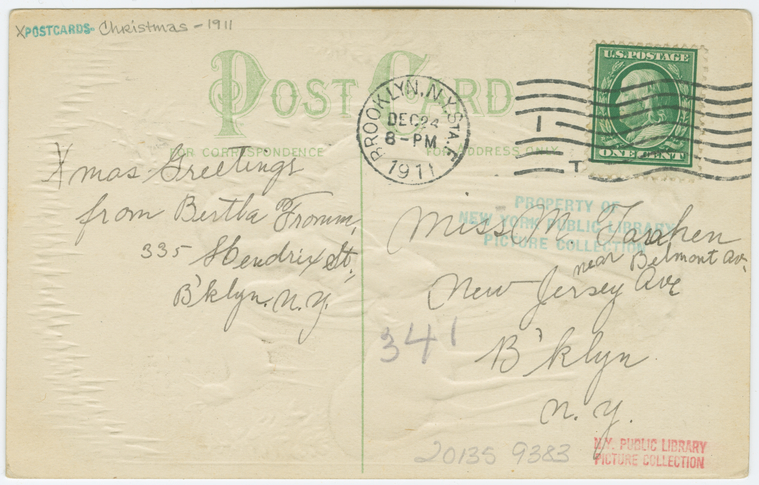 XPOSTCARDS- Christmas - 1911
POST CARD
FOR CORRESPONDENCE
FOR ADDRESS ONLY
BROOKLYN, N.Y. STA. 
DEC 24
8-PM
1911
1
T
U.S. POSTAGE
ONE CENT
Xmas Greetings
from Bertha Fromm,
335 Hendrix St.,
B'klyn. N.Y.
PROPERTY OF
NEW YORK PUBLIC LIBRARY
PICTURE COLLECTION
Miss M.
near Belmont Av.
New Jersey Ave
B'klyn
N.Y.
341
20135 9383
N.Y. PUBLIC LIBRARY
PICTURE COLLECTION